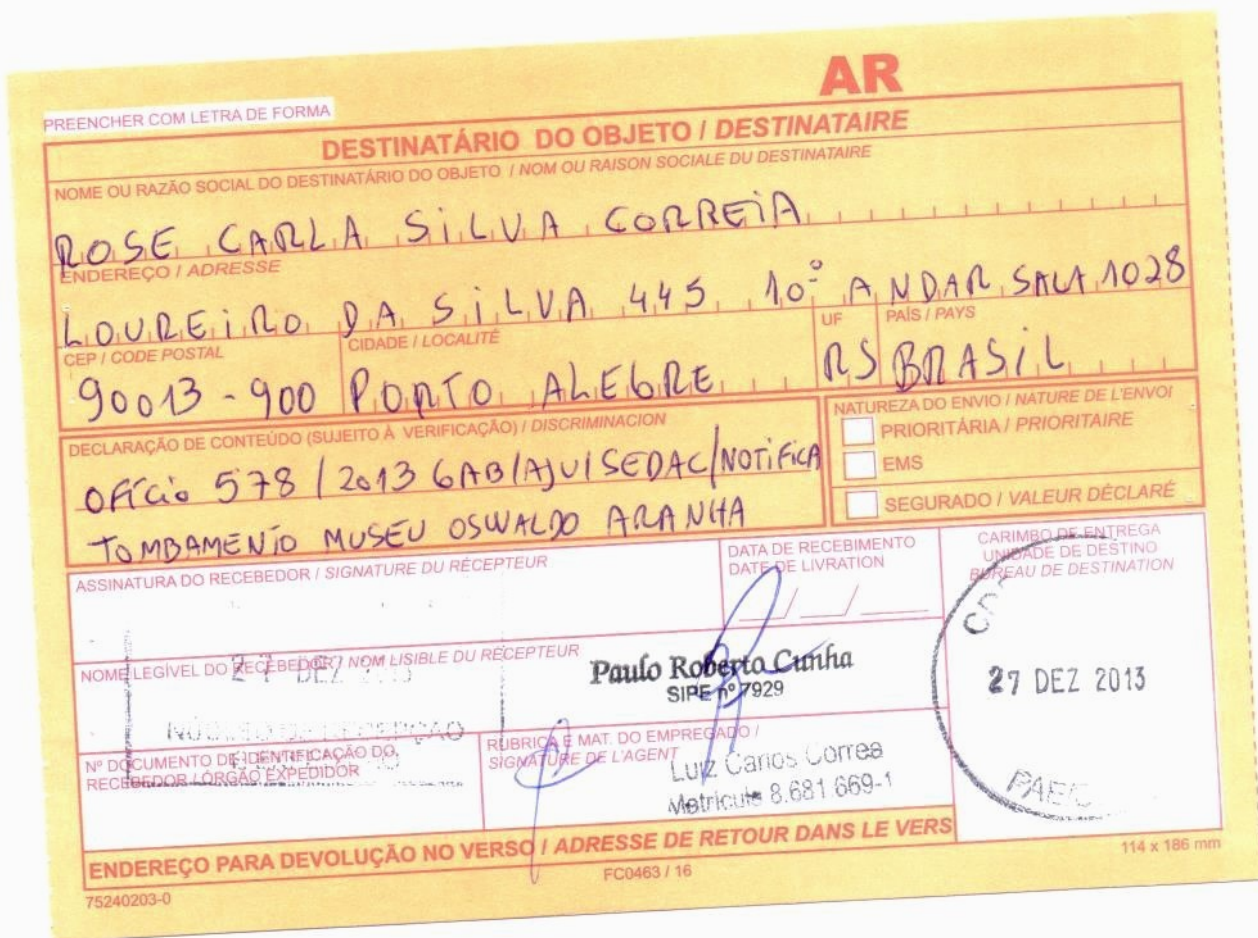 AR
PREENCHER COM LETRA DE FORMA
DESTINATÁRIO DO OBJETO / DESTINATAIRE
NOME OU RAZÃO SOCIAL DO DESTINATÁRIO DO OBJETO / NOM OU RAISON SOCIALE DU DESTINATAIRE
ROSE CARLA SILVA CORREIA
ENDEREÇO / ADRESSE
LOUREIRO DA SILVA 445 10º ANDAR SALA 1028
CEP / CODE POSTAL CIDADE / LOCALITÉ UF PAÍS / PAYS
90013-900 PORTO ALEGRE RS BRASIL
DECLARAÇÃO DE CONTEÚDO (SUJEITO À VERIFICAÇÃO) / DISCRIMINACION
OFÍCIO 578/2013 GAB/AJU/SEDAC/NOTIFICA
TOMBAMENTO MUSEU OSWALDO ARANHA
NATUREZA DO ENVIO / NATURE DE L'ENVOI
PRIORITÁRIA / PRIORITAIRE
EMS
SEGURADO / VALEUR DÉCLARÉ
ASSINATURA DO RECEBEDOR / SIGNATURE DU RÉCEPTEUR
DATA DE RECEBIMENTO
DATE DE LIVRATION
CARIMBO DE ENTREGA
UNIDADE DE DESTINO
BUREAU DE DESTINATION
NOME LEGÍVEL DO RECEBEDOR / NOM LISIBLE DU RÉCEPTEUR
27 DEZ 2013
Paulo Roberto Cunha
SIPE nº 7929
27 DEZ 2013
NÚCLEO DE RECEPÇÃO
Nº DOCUMENTO DE IDENTIFICAÇÃO DO
RECEBEDOR / ÓRGÃO EXPEDIDOR
RUBRICA E MAT. DO EMPREGADO /
SIGNATURE DE L'AGENT
Luiz Carlos Correa
Matricula 8.681.669-1
ENDEREÇO PARA DEVOLUÇÃO NO VERSO / ADRESSE DE RETOUR DANS LE VERS
75240203-0
FC0463 / 16
114 x 186 mm